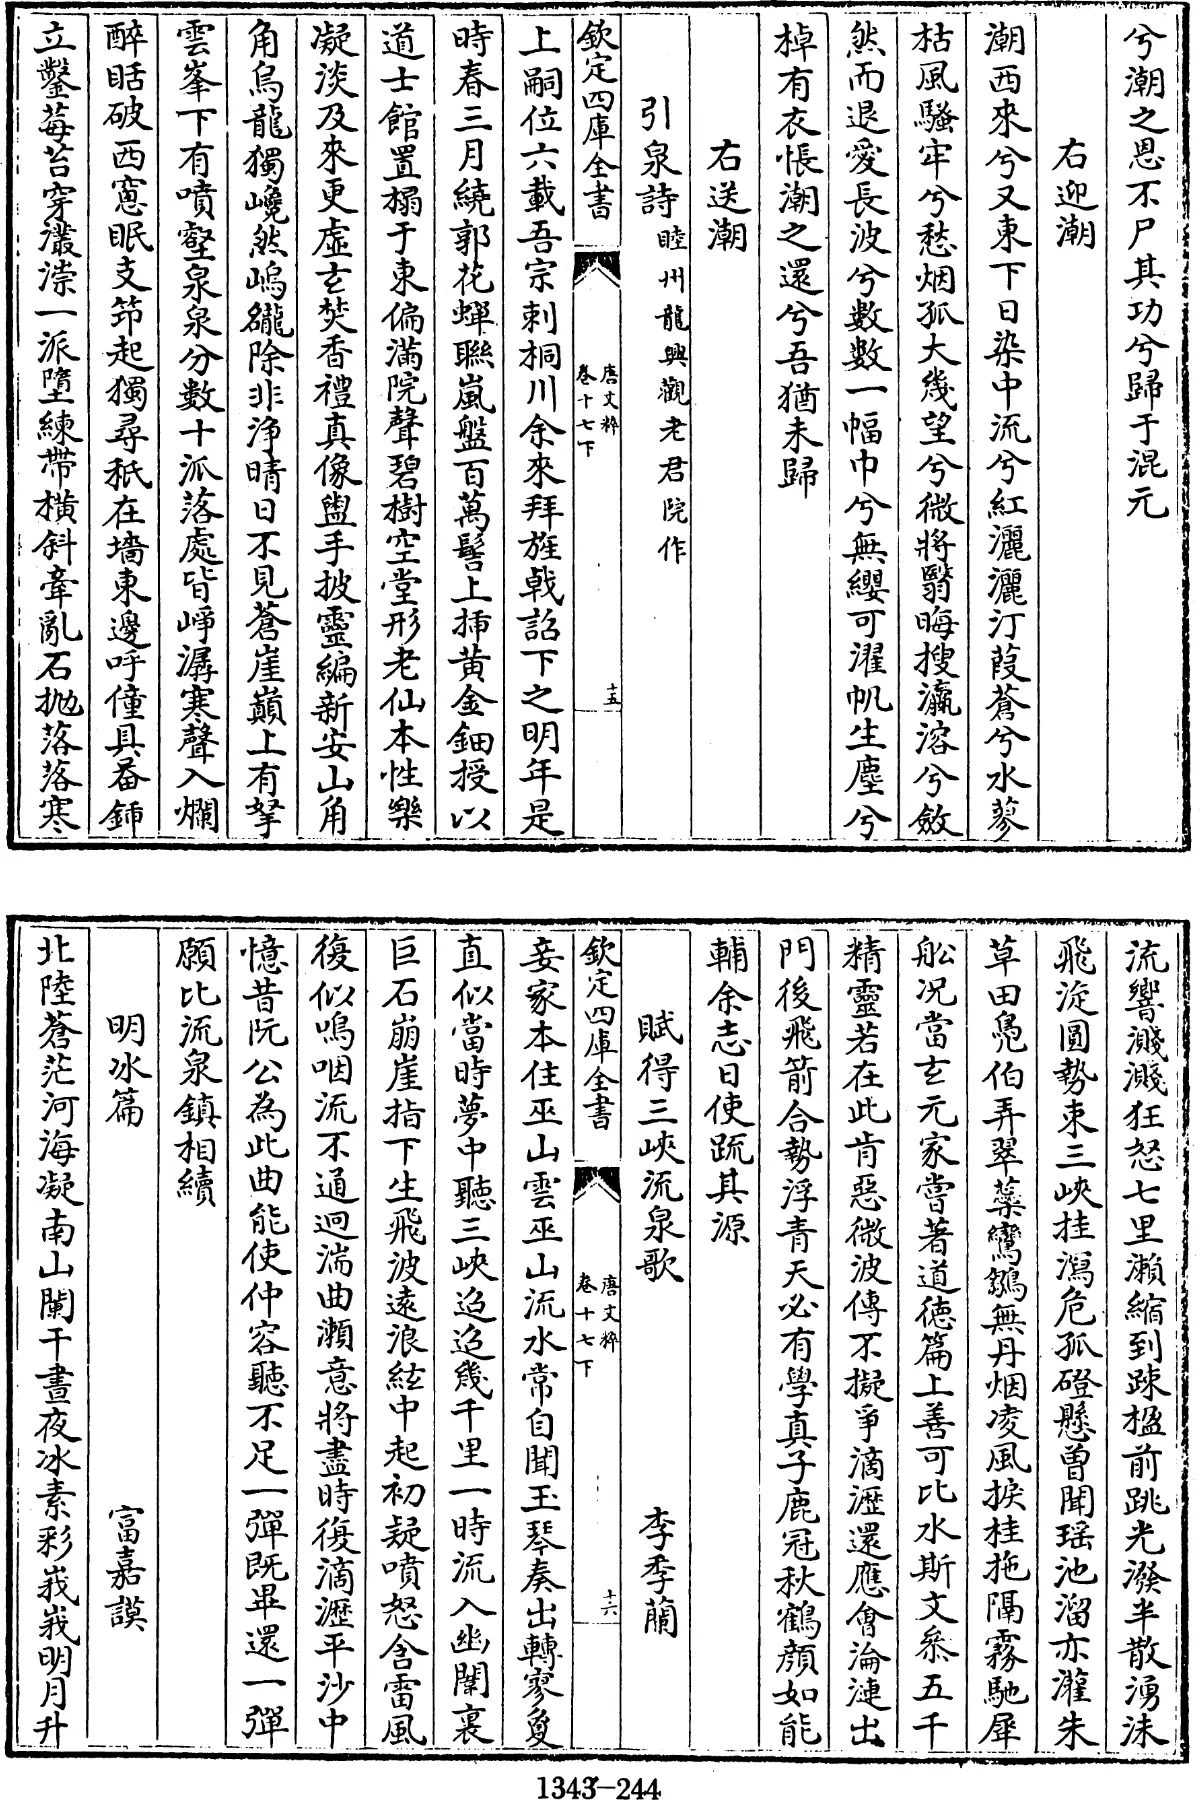 兮潮之恩不尸其功兮歸于混元
右迎潮
潮西來兮又東下日染中流兮紅灑灑汀葭蒼兮水蓼
枯風騷牢兮愁烟孤大幾望兮微將翳晦搜瀛溶兮斂
然而退愛長波兮數數一幅巾兮無纓可濯帆生塵兮
棹有衣悵潮之還兮吾猶未歸
右送潮
引泉詩睦州龍興觀老君院作
欽定四庫全書
唐文粹
卷十七下
十五
上嗣位六載吾宗刺桐川余來拜旌戟詔下之明年是
時春三月繞郭花蟬聯嵐盤百萬髻上揷黃金鈿授以
道士館置榻于東偏滿院聲碧樹空堂形老仙本性樂
凝淡及來更虛玄焚香禮真像盥手披靈編新安山角
角烏龍獨巉然嵨巃除非淨晴日不見蒼崖巔上有拏
雲峯下有噴壑泉泉分數十派落處皆崢潺寒聲入爛
醉聒破西窻眠支笻起獨尋秖在墻東邊呼僮具畚鍤
立鑿莓苔穿灇漴一派墮練帶橫斜牽亂石抛落落寒
流響濺濺狂怒七里瀨縮到疎楹前跳光潑半散湧沫
飛淀圓勢束三峽挂瀉危孤磴懸曾聞瑶池溜亦灌朱
草田鳧伯弄翠蘂鸞鶵無丹烟凌風捩桂拖隔霧馳犀
舩况當玄元家嘗著道德篇上善可比水斯文叅五千
精靈若在此肯惡微波傳不擬爭滴瀝還應會淪漣出
門後飛箭合勢浮青天必有學真子鹿冠秋鶴顔如能
輔余志日使疏其源
賦得三峽流泉歌 李季蘭
欽定四庫全書
唐文粹
卷十七下
十六
妾家本住巫山雲巫山流水常自聞玉琴奏出轉寥夐
直似當時夢中聽三峽迢迢幾千里一時流入幽閨裏
巨石崩崖指下生飛波遠浪絃中起初疑噴怒含雷風
復似嗚咽流不通迴湍曲瀨意將盡時復滴瀝平沙中
憶昔阮公為此曲能使仲容聽不足一彈既畢還一彈
願比流泉鎮相續
明冰篇 富嘉謨
北陸蒼茫河海凝南山闌干晝夜冰素彩峩峩明月升
1343-244